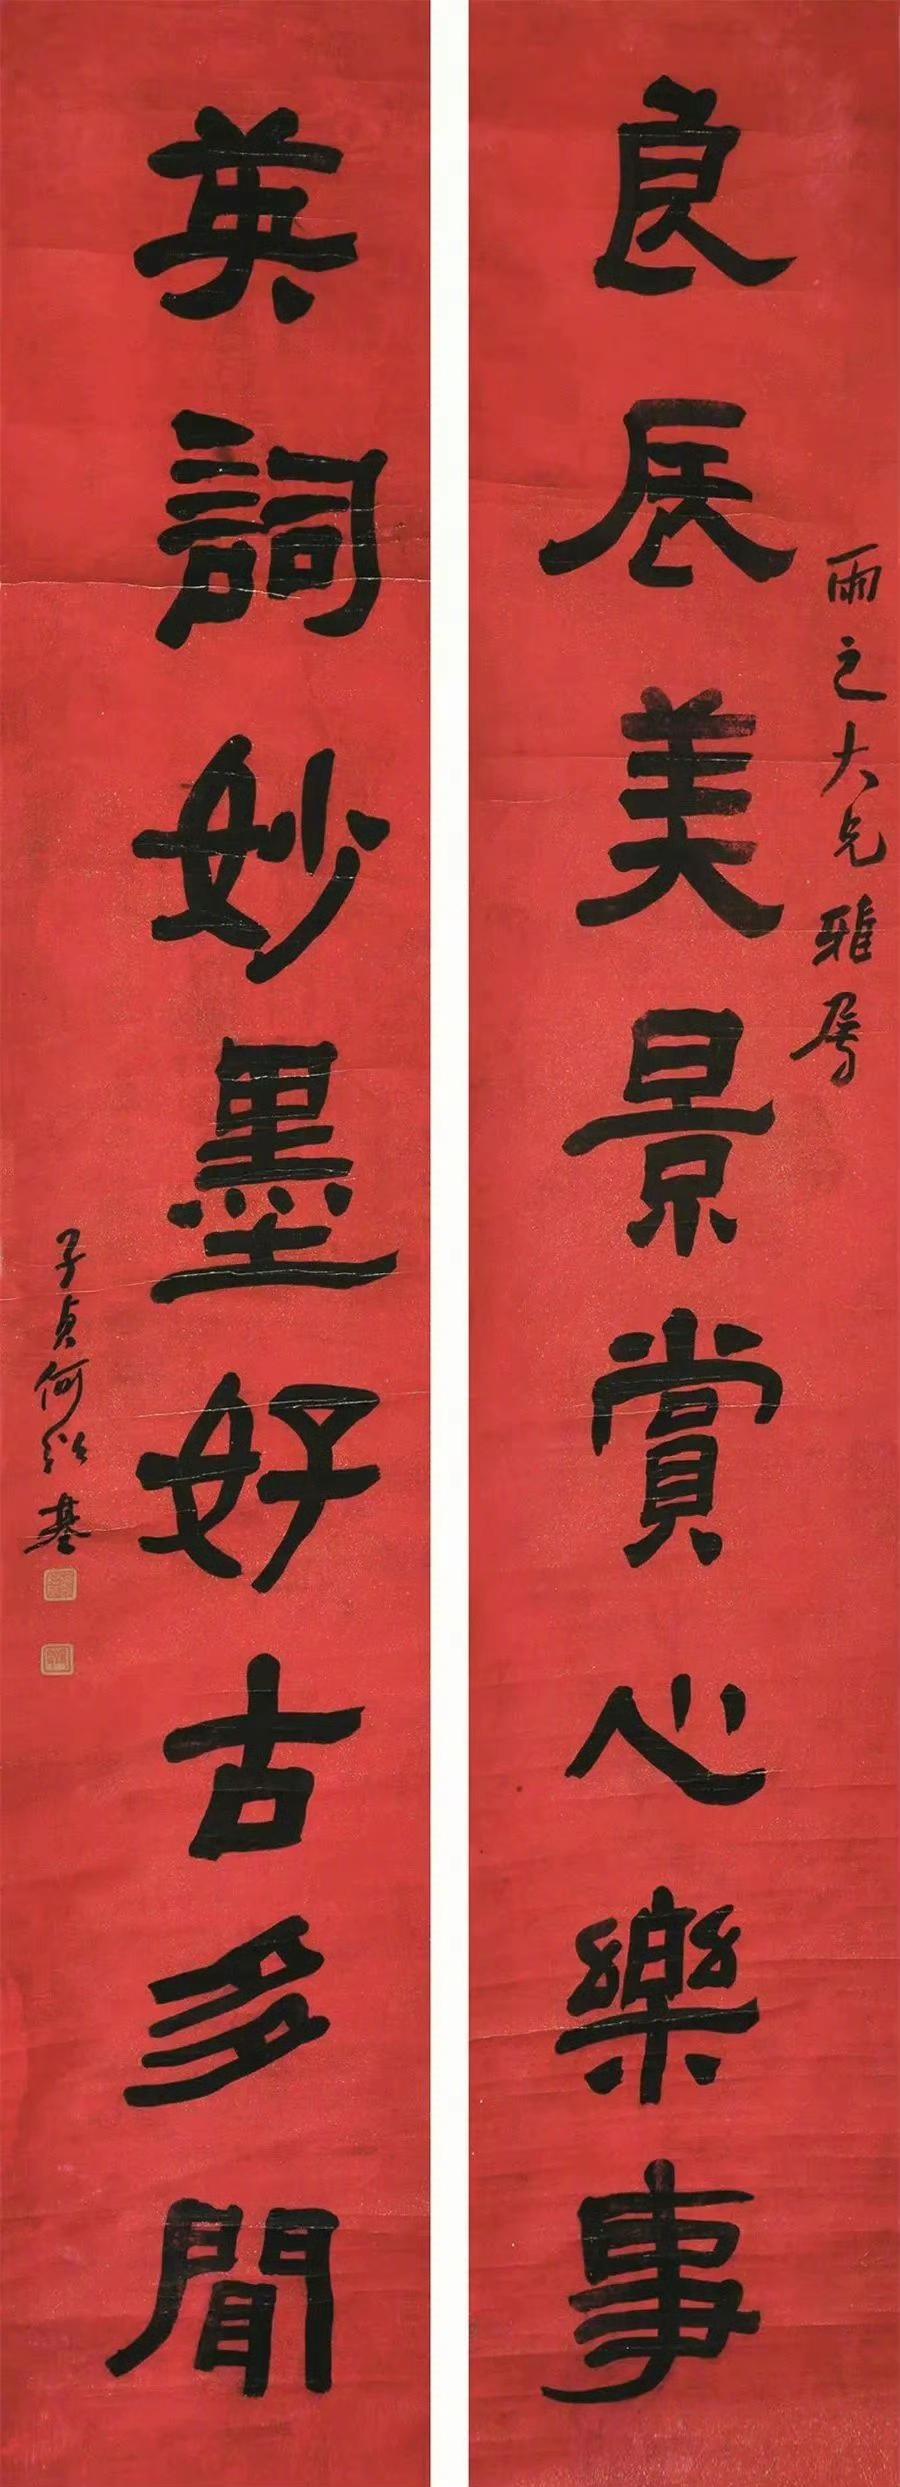 雨之大兄雅属
良辰美景賞心樂事
英詞妙墨好古多聞
子貞何紹基